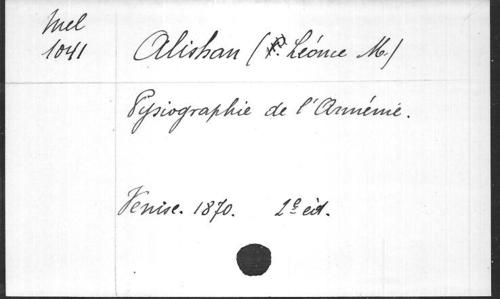 Mel
1041
Alishan (P. Léonce M.)
Pysiographie de l'Arménie.
Venise. 1870. 2e éd.